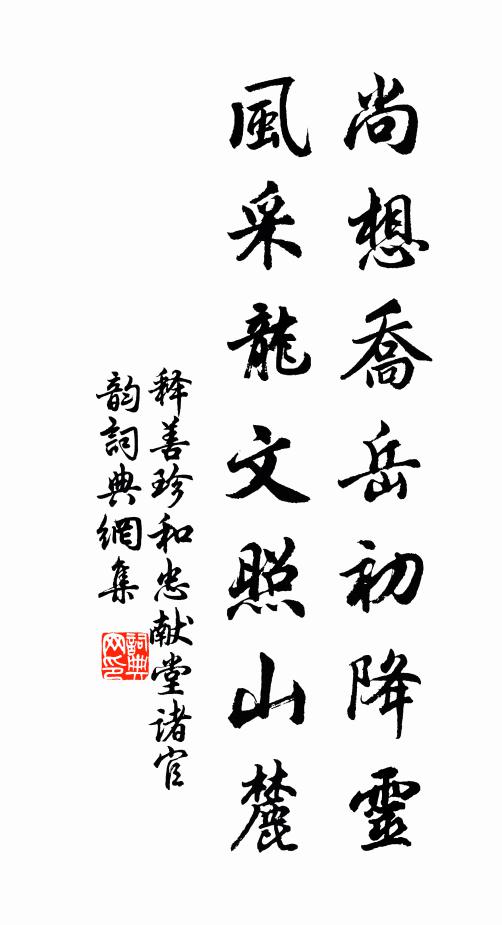 尚想喬岳初降靈
風采龍文照山麓
释善珍和忠献堂諸官
韵詞典網集
詞典
网印